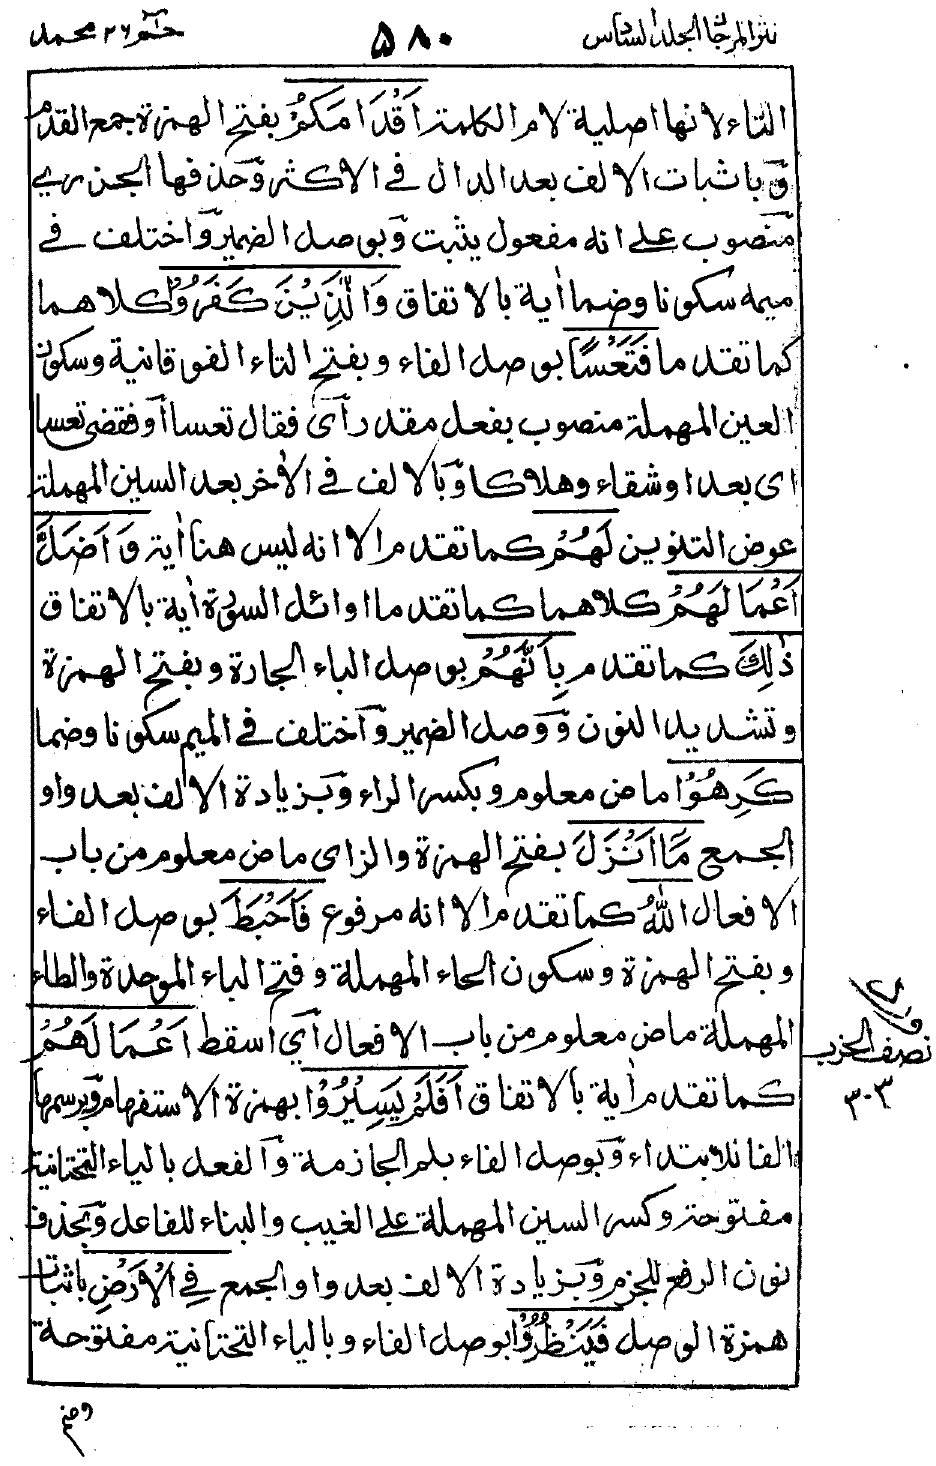 نثر المرجان الجلد السادس
٥٨٠
حٰم ٢٦ محمد
التاء لانها اصلية لام الكلمة اَقْدَامَكُمْ بفتح الهمزة جمع القدم
وباثبات الالف بعد الدال فى الاكثر وحذفها الجزرى
منصوب على انه مفعول يثبت وبوصل الضمير واختلف فى
ميمه سكونا وضما اٰية بالاتفاق وَالَّذِيْنَ كَفَرُوْا كلاهما
كما تقدما فَتَعْسًا بوصل الفاء وبفتح التاء الفوقانية وسكون
العين المهملة منصوب بفعل مقدر اى فقال تعسا او فقضى تعسا
اى بعدا وشقاء وهلاكا وبالالف فى الاٰخر بعد السين المهملة
عوض التنوين لَهُمْ كما تقدم الا انه ليس هنا اٰية وَاَضَلَّ
اَعْمَالَهُمْ كلاهما كما تقدما اوائل السورة اٰية بالاتفاق
ذٰلِكَ كما تقدم بِاَنَّهُمْ بوصل الباء الجارة وبفتح الهمزة
وتشديد النون ووصل الضمير واختلف فى الميم سكونا وضما
كَرِهُوْا ماض معلوم وبكسر الراء وبزيادة الالف بعد واو
الجمع مَا اَنْزَلَ بفتح الهمزة والزاى ماض معلوم من باب
الافعال اللّٰهُ كما تقدم الا انه مرفوع فَاَحْبَطَ بوصل الفاء
وبفتح الهمزة وسكون الحاء المهملة وفتح الباء الموحدة والطاء
المهملة ماض معلوم من باب الافعال اى اسقط اَعْمَالَهُمْ
كما تقدم اٰية بالاتفاق اَفَلَمْ يَسِيْرُوْا بهمزة الاستفهام وبرسمها
الفا للابتداء وبوصل الفاء بلم الجازمة والفعل بالياء التحتانية
مفتوحة وكسر السين المهملة على الغيب والبناء للفاعل وبحذف
نون الرفع للجزم وبزيادة الالف بعد واو الجمع فِى الْاَرْضِ باثبات
همزة الوصل فَيَنْظُرُوْا بوصل الفاء وبالياء التحتانية مفتوحة
نصف الحزب
٣٠٣
وضم